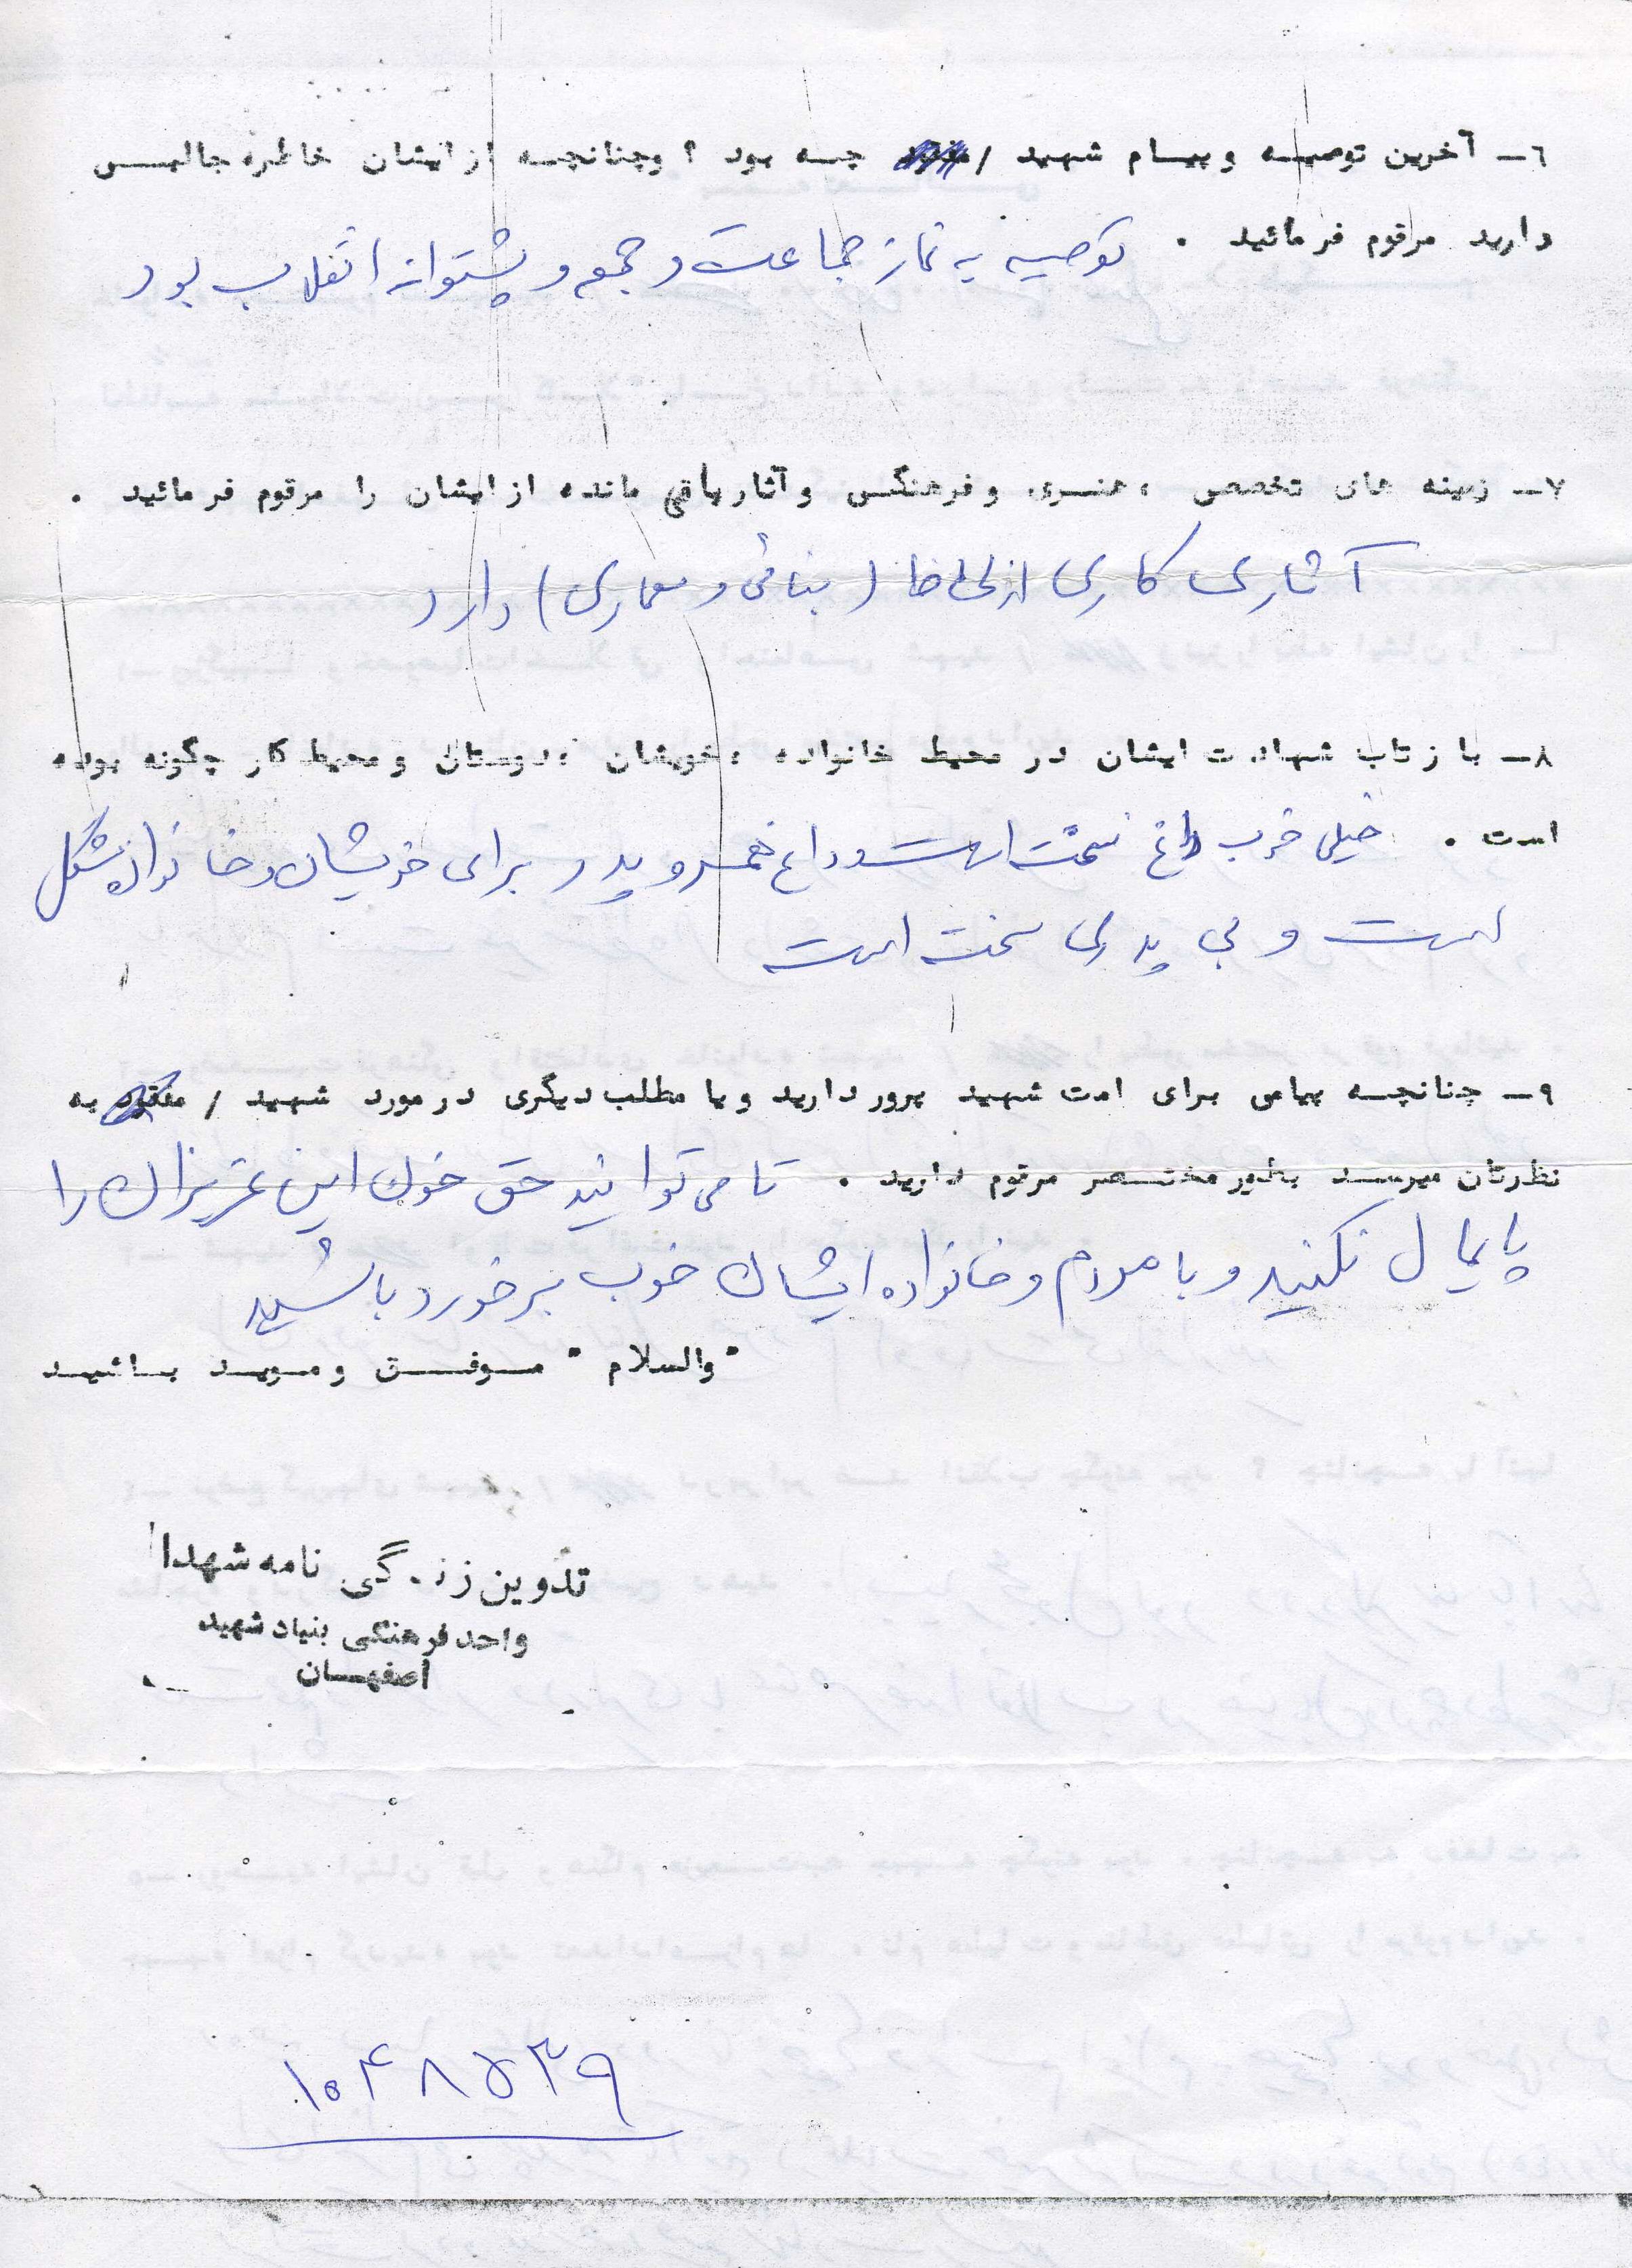 ۶ـ آخرین توصیه و پیام شهید / چه بود ؟ وچنانچه از ایشان خاطره جالبی
دارید مرقوم فرمائید . توصیه به نماز جماعت و جمعه و پشتوانه انقلاب بود
۷ـ زمینه های تخصصی ، هنری و فرهنگی و آثار باقی مانده از ایشان را مرقوم فرمائید .
آثاری کاری از لحاظ (بنائی و معماری) دارد
۸ـ با زتاب شهادت ایشان در محیط خانواده ، خویشان ، دوستان و محیط کار چگونه بوده
است . خیلی خوب داغ سخت است و داغ همسر و پدر برای خویشان و خانواده مشکل
است و بی پدری سخت است
۹ـ چنانچه پیامی برای امت شهید پرور دارید و یا مطلب دیگری در مورد شهید / مفقود به
نظرتان میرسد بطور مختصر مرقوم دارید . تا می توانید حق خون این عزیزان را
پایمال نکنید و با مردم و خانواده ایشان خوب برخورد باشید
"والسلام" موفق و موید باشید
تدوین زندگی نامه شهدا
واحد فرهنگی بنیاد شهید
اصفهان
۱۰۴۸۵۳۹